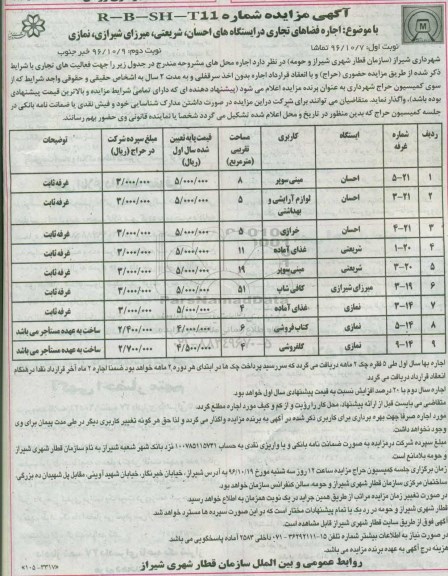 آگهی مزایده شماره R-B-SH-T11
با موضوع: اجاره فضاهای تجاری در ایستگاه های احسان، شریعتی، میرزای شیرازی، نمازی
نوبت اول: ۹۶/۱۰/۷ تماشا
نوبت دوم: ۹۶/۱۰/۹ خبر جنوب
شهرداری شیراز (سازمان قطار شهری شیراز و حومه) در نظر دارد اجاره محل های مشروحه مندرج در جدول زیر را جهت فعالیت های تجاری با شرایط
ذکر شده از طریق مزایده حضوری (حراج) و با انعقاد قرارداد اجاره بدون اخذ سرقفلی و به مدت ۲ سال به اشخاص حقیقی و حقوقی واجد شرایط که از
سوی کمیسیون حراج شهرداری به عنوان برنده مزایده اعلام می شود (پیشنهاد دهنده ای که دارای تمامی شرایط مزایده و بالاترین قیمت پیشنهادی
باشد)، واگذار نماید. متقاضیان می توانند برای شرکت در این مزایده در صورت داشتن مدارک شناسایی خود و فیش نقدی یا ضمانت نامه بانکی در
جلسه کمیسیون حراج که بدین منظور در تاریخ و محل اعلام شده تشکیل می گردد شخصا یا نماینده قانونی وی حضور بهم رسانند.
ردیف | شماره غرفه | ایستگاه | کاربری | مساحت تقریبی (مترمربع) | قیمت پایه تعیین شده سال اول (ریال) | مبلغ سپرده شرکت در حراج (ریال) | توضیحات
۱ | ۵-۲۱ | احسان | مینی سوپر | ۸ | ۵/۰۰۰/۰۰۰ | ۳/۰۰۰/۰۰۰ | غرفه ثابت
۲ | ۳-۲۱ | احسان | لوازم آرایشی و بهداشتی | ۵ | ۵/۰۰۰/۰۰۰ | ۳/۰۰۰/۰۰۰ | غرفه ثابت
۳ | ۴-۲۱ | احسان | خرازی | ۵ | ۵/۰۰۰/۰۰۰ | ۳/۰۰۰/۰۰۰ | غرفه ثابت
۴ | ۱-۲۰ | شریعتی | غذای آماده | ۱۱ | ۵/۰۰۰/۰۰۰ | ۳/۰۰۰/۰۰۰ | غرفه ثابت
۵ | ۳-۲۰ | شریعتی | مینی سوپر | ۱۹ | ۵/۰۰۰/۰۰۰ | ۳/۰۰۰/۰۰۰ | غرفه ثابت
۶ | ۳-۱۹ | میرزای شیرازی | کافی شاپ | ۵۱ | ۵/۰۰۰/۰۰۰ | ۳/۰۰۰/۰۰۰ | غرفه ثابت
۷ | ۳-۱۴ | نمازی | غذای آماده | ۴ | ۵/۰۰۰/۰۰۰ | ۳/۰۰۰/۰۰۰ | غرفه ثابت
۸ | ۵-۱۴ | نمازی | کتاب فروشی | ۶ | ۴/۰۰۰/۰۰۰ | ۲/۴۰۰/۰۰۰ | ساخت به عهده مستاجر می باشد
۹ | ۹-۱۴ | نمازی | گلفروشی | ۴ | ۴/۵۰۰/۰۰۰ | ۲/۷۰۰/۰۰۰ | ساخت به عهده مستاجر می باشد
اجاره بها سال اول طی ۵ فقره چک ۲ ماهه دریافت می گردد که سررسید پرداخت چک ها در ابتدای هر دوره ۲ ماهه خواهد بود ضمنا اجاره ۲ ماه آخر قرارداد نقدا در هنگام
انعقاد قرارداد دریافت می گردد.
اجاره سال دوم با ۲۰ درصد افزایش نسبت به قیمت پیشنهادی سال اول خواهد بود.
متقاضی می بایست قبل از ارائه پیشنهاد، محل کار را رؤیت و از کم و کیف مورد اجاره مطلع گردد.
مورد اجاره صرفا جهت بهره برداری برای کاربری ذکر شده در آگهی به برنده مزایده واگذار می گردد و لذا حق هر گونه تغییر کاربری دیگر در طی مدت پیمان برای وی
وجود نخواهد داشت.
مبلغ سپرده شرکت در مزایده به صورت ضمانت نامه بانکی و یا واریزی نقدی به حساب ۱۰۰۷۸۵۱۱۵۷۳۱ نزد بانک شهر شعبه شیراز به نام سازمان قطار شهری شیراز
و حومه بلامانع است
زمان برگزاری جلسه کمیسیون حراج مزایده ساعت ۱۲ روز سه شنبه مورخ ۹۶/۱۰/۱۹ به آدرس شیراز، خیابان خبرنگار، خیابان شهید آوینی، مقابل پل شهیدان ده بزرگی،
ساختمان مرکزی سازمان قطار شهری شیراز و حومه، سالن کنفرانس سازمان خواهد بود.
در صورت تغییر زمان مزایده مراتب از طریق همین جراید در یک نوبت همزمان به اطلاع خواهد رسید.
قطار شهری شیراز و حومه در رد یک یا تمام پیشنهادات مختار است که در این صورت سپرده ها مسترد خواهد شد.
آگهی فوق از طریق سایت قطار شهری شیراز قابل مشاهده است.
در صورت نیاز به اطلاعات بیشتر شماره تلفن ۱۵-۳۶۲۹۲۱۱۱-۰۷۱ داخلی ۲۵۸۳ آماده پاسخگویی می باشد.
هزینه درج آگهی به عهده برنده مزایده می باشد.
روابط عمومی و بین الملل سازمان قطار شهری شیراز
۷۱۰۵-۳۳۱۷۷